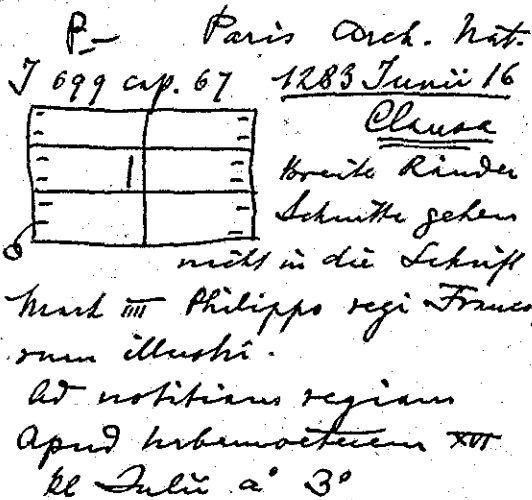 P.– Paris Arch. Nat.
J 699 cap. 67 1283 Junii 16
Clausa
breite Ränder
Schnitte gehen
nicht in die Schrift
Mart IIII Philippo regi Franco
rum illustri.
Ad notitiam regiam
Apud Urbemveterem XVI
kl Julii a° 3°